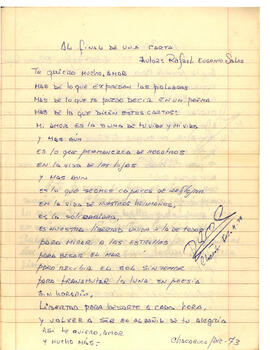 Al final de una carta
Autor: Rafael Eugenio Salas
Te quiero mucho, amor
mas de lo que expresan las palabras
mas de lo que te puedo decir en un poema
mas de lo que dicen estas cartas:
Mi amor es la suma de mi vida y mi vida,
y mas aun
es lo que permanecera de nosotros
en la vida de los hijos
y mas aun
es lo que seamos capaces de
en la vida de nuestros hermanos,
es la solidaridad,
es nuestra libertad unida a la de todos
para mirar a las estrellas
para besar el mar
para recibir el sol sin temor
para transmutar la luna en poesia
sin horario,
Libertad para amarte a cada hora,
y volver a ser el albañil de tu alegria
Asi te quiero, amor
y mucho más.-
Chacabuco, Dic. 73